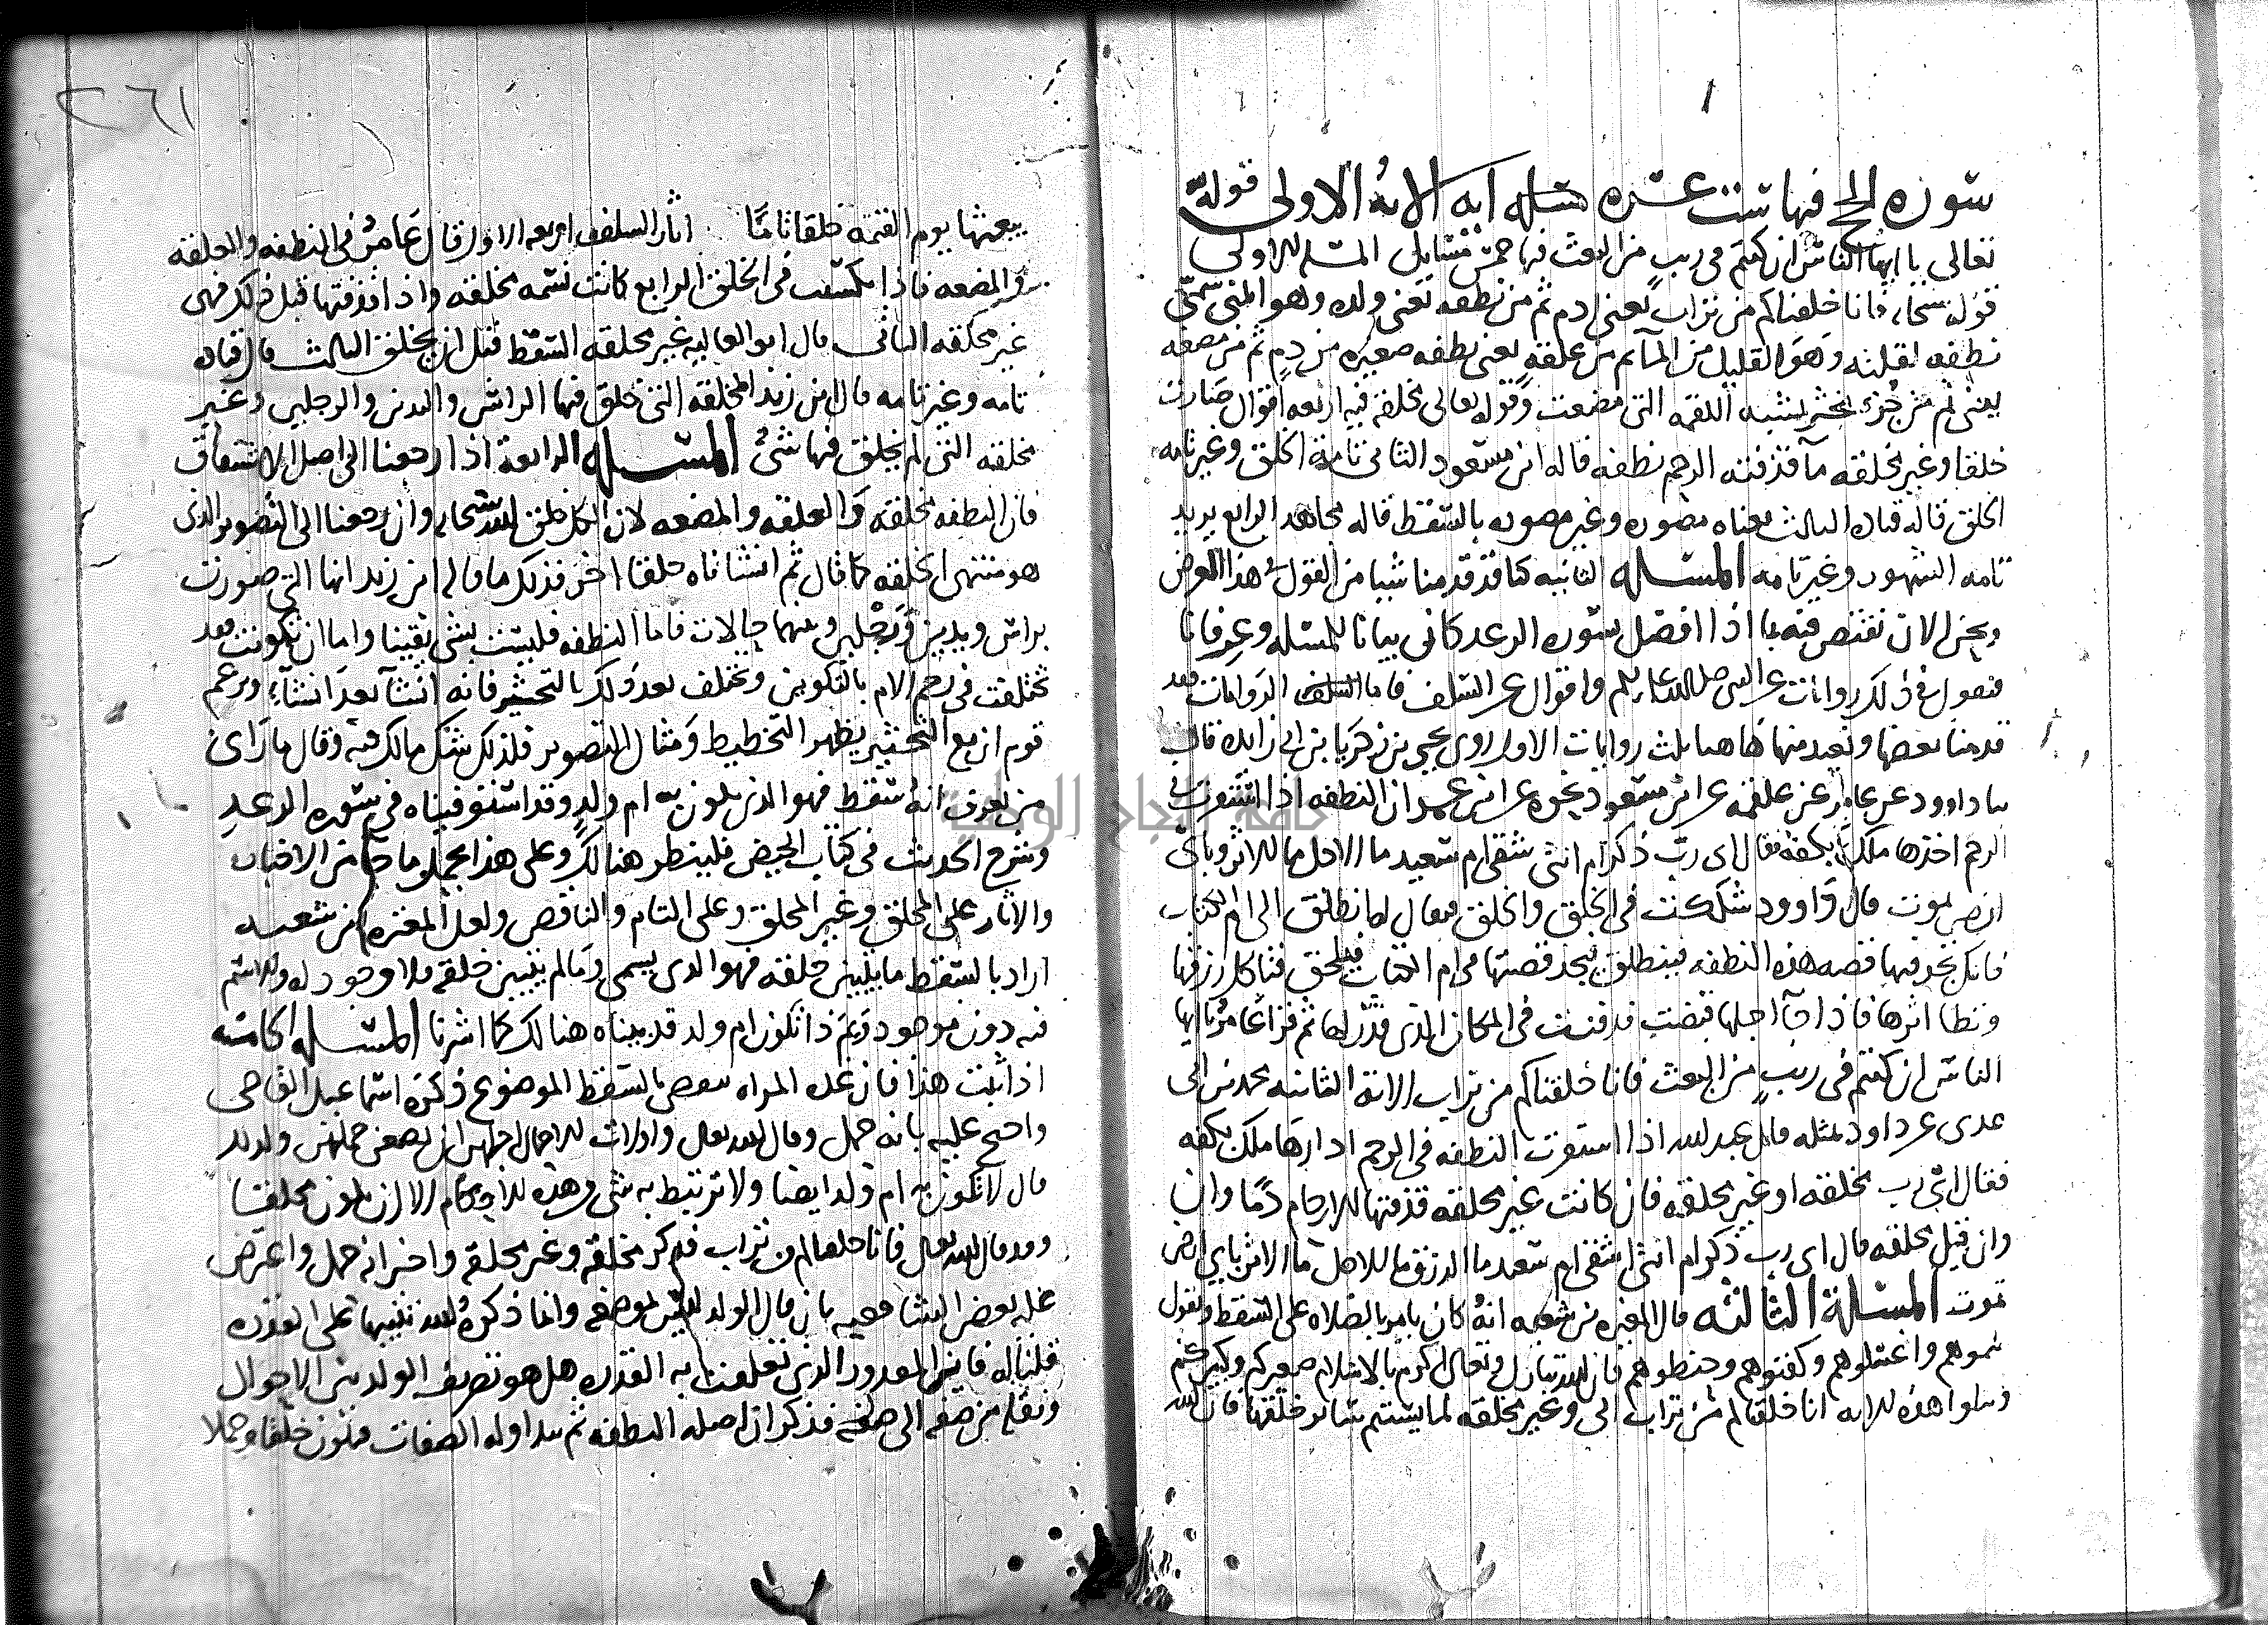 سورة الحج فيها ست عشره ايه الاية الاولى قوله
تعالى يا ايها الناس ان كنتم في ريب من البعث فيها خمس مسايل المسلة الاولى
قوله سبحانه فانا خلقناكم من تراب يعني ادم ثم من نطفه يعني ولده وهو المني سمي
نطفه لقلته وهو القليل من الماء ثم من علقه يعني نطفه صغيره من دم ثم من مضغه
يعني ثم من جزء يشبه اللقمه التي مضغت وقوله تعالى مخلقه فيه اربعه اقوال صارت
خلقا وغير مخلقه ما قذفته الرحم نطفه قاله ابن مسعود الثاني تامة الخلق وغير تامه
الخلق قاله قتاده الثالث معناه مصوره وغير مصوره بالسقط قاله مجاهد الرابع يريد
تامه الشهور وغير تامه المسله الثانيه كنا قد قدمنا شيا من القول في هذا الغرض
ونحن الان نقتص فيه بما اذا اتصل بسوره الرعد كانى بيانا للمسله وعرفانا
فنقول في ذلك روايات عن النبي صلى الله عليه وسلم واقوال عن السلف فاما الروايات فقد
قدمنا بعضها ونعيد منها هاهنا ثلث روايات الاولى روى يحيى بن زكريا بن ابي زايده قال
نا داوود عن عامر عن علقمه عن ابن مسعود نحوه عن ابن عمر ان النطفه اذا استقرت في
الرحم اخذها ملك بكفه فقال اي رب ذكر ام انثى شقي ام سعيد ما الاجل ما الاثر وباي
ارض تموت قال داوود شككت في الخلق والخلق فيقال لها نطلق الى ام الكتاب
فانك تجد فيها قصه هذه النطفه فينطلق فيجد قصتها في ام الكتاب فتخلق فتاكل رزقها
وتطا اثرها فاذا جا اجلها قبضت فدفنت في المكان الذي قدر لها ثم قرا عامر يايها
الناس ان كنتم في ريب من البعث فانا خلقناكم من تراب الاية الثانيه محمد بن ابي
عدي عن داود بمثله قال عبد الله اذا استقرت النطفه في الرحم ادارها ملك بكفه
فقال اي رب مخلقه او غير مخلقه فان كانت غير مخلقه قذفتها الارحام دما وان
وان قيل مخلقه قال اي رب ذكر ام انثى شقي ام سعيد ما الرزق ما الاجل ما الاثر باي ارض
تموت المسلة الثالثه قال المغيره بن شعبه انه كان يامر بالصلاه على السقط ويقول
سموهم واغسلوهم وكفنوهم وحنطوهم فان الله تبارك وتعالى اكرم بالاسلام صغيركم وكبيركم
ويتلوا هذه الايه انا خلقناكم من تراب الى وغير مخلقه لما يستتم ساير خلقها فان الله
يبعثها يوم القيمه خلقا تاما اثار السلف اربعه الاول قال عامر في النطفه والعلقه
والمضغه فاذا نكست في الخلق الرابع كانت نسمه مخلقه واذا قذفتها قبل ذلك فهي
غير مخلقه الثاني قال ابو العاليه غير مخلقه السقط قبل ان يخلق الثالث قال قتاده
تامه وغير تامه قال ابن زيد المخلقه التي خلق فيها الراس واليدين والرجلين وغير
مخلقه التي لم يخلق فيها شي المسله الرابعة اذا رجعنا الى اصل الاشتقاق
فان النطفه مخلقه والعلقه والمضغه لان الكل خلق الله سبحانه وان رجعنا الى التصوير الذي
هو منتهى الخلقه كما قال ثم انشاناه خلقا اخر فذلك ما قال ابن زيد انها التي صورت
براس ويدين ورجلين وبينهما حالات فاما النطفه فليست بشي يقينا واما ان تكونت فقد
تخلقت في رحم الام بالتكوين وتخلف بعد ذلك بالتحثير فانه انشا بعد انشاء وزعم
قوم ان مع التحثير يظهر التخطيط ومثال التصوير فلذلك شك مالك فيه وقال ما راى
من يعرف انه سقط فهو الذي يكون به ام ولد وقد استوفيناه في سوره الرعد
وشرح الحديث في كتاب الحيض فلينظر هنالك وعلى هذا يحمل ما جا من الاخبار
والاثار على المخلق وغير المخلق وعلى التام والناقص ولعل المغيره بن شعبه
اراد بالسقط ما يتبين خلقه فهو الذي يسمى وما لم يتبين خلقه فلا وجود له والاسم
فيه دون موجود وبم ذا تكون ام ولد قد بيناه هنالك كما اشرنا المسله الخامسه
اذا ثبت هذا فان عده المراه تنقضي بالسقط الموضوع ذكره اسماعيل القاضي
واحتج عليه بانه حمل وقال الله تعالى واولات الاحمال اجلهن ان يضعن حملهن وكذلك
قال لا تكون به ام ولد ايضا ولا ترتبط به شي وهذه الاحكام الا ان يكون مخلقا
وقد قال الله تعالى فانا خلقناكم من تراب فذكر مخلقه وغير مخلقه واخبر انه حمل واعترض
عليه بعض الشافعيه بان قال الولد ليس لمضغه وانما ذكره الله تنبيها على القدره
قلنا له فاين المقدور الذي تعلقت به القدره هل هو تصريف الولد بين الاحوال
ونقله من صفه الى صفه فذكر ان اصله النطفه ثم تداوله الصفات فيكون خلقا وحملا